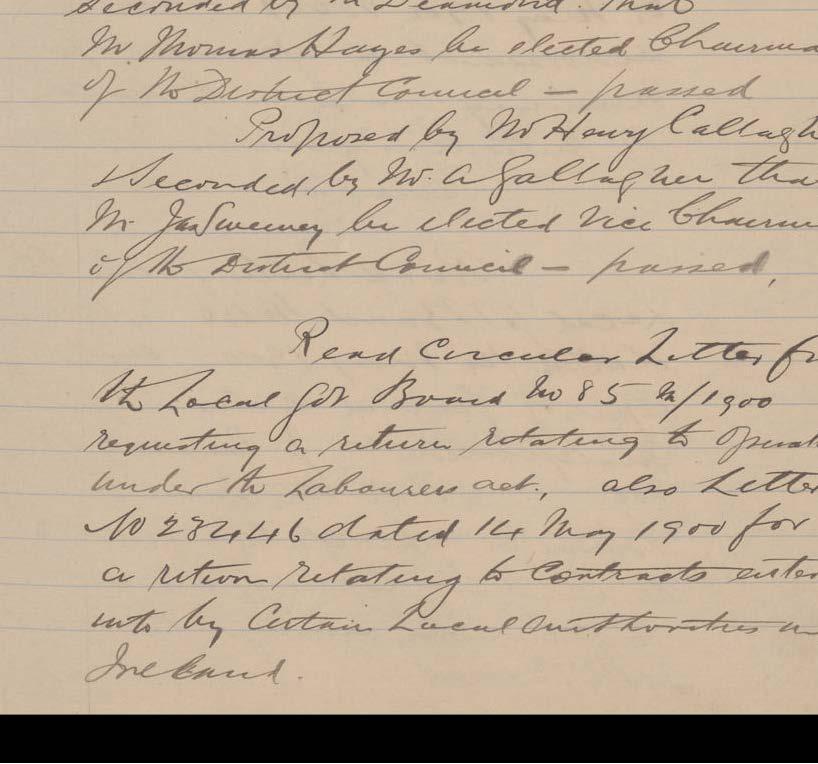 Seconded by Mr Desmond. That
Mr Thomas Hayes be elected Chairma
of the District Council – passed
Proposed by Mr Henry Callagh
Seconded by Mr. A Gallagher tha
Mr Jas Sweeney be elected Vice Chairm
of the District Council – passed,
Read Circular Letter fr
the Local Govt Board No 85 M/1900
requesting a return relating to Operat
under the Labourers act., also Letter
No 23446 dated 14 May 1900 for
a return relating to Contracts enter
into by Certain Local Authorities in
Ireland.